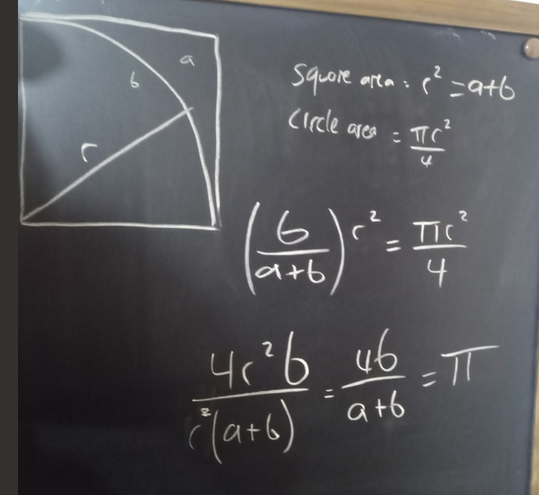 a
b
r
Square area = r² = a+b
Circle area = πr²/4
(b/(a+b)) r² = πr²/4
4r²b/(r²(a+b)) = 4b/(a+b) = π